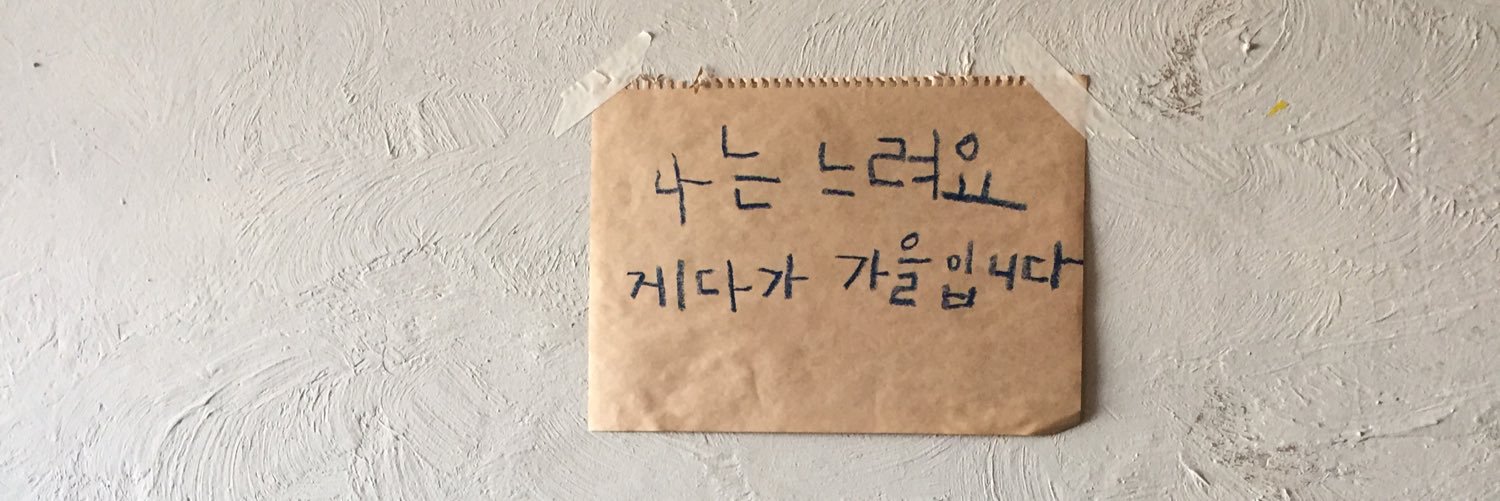 나는 느려요
게다가 가을입니다